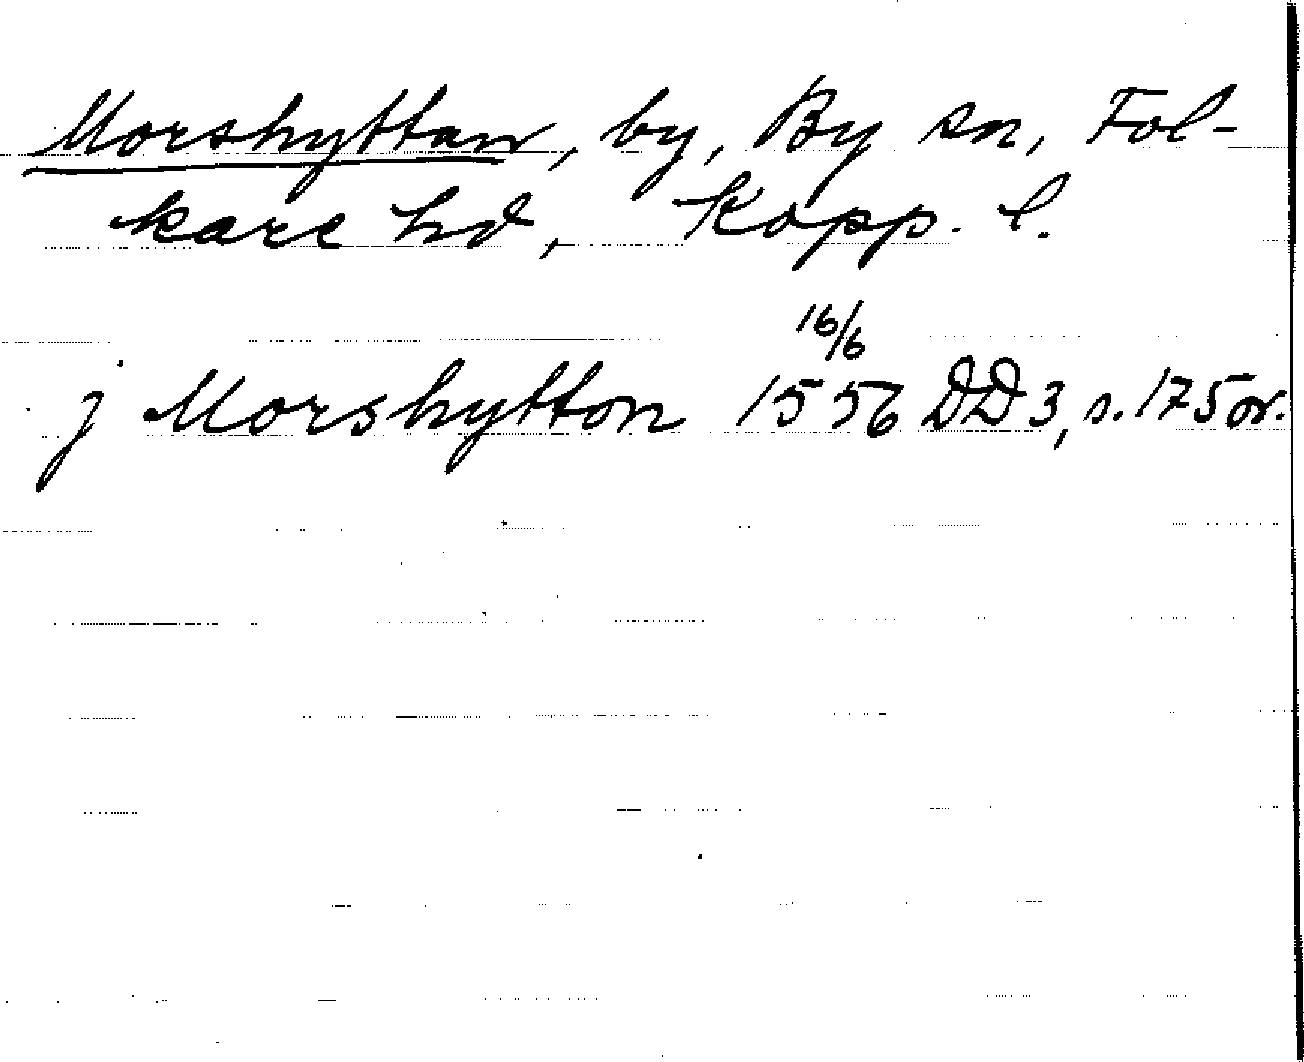 Morshyttan, by, By sn, Fol-
kare hd, Kopp. l.
16/6
j Morshytton 1556 DD 3, s. 175 or.